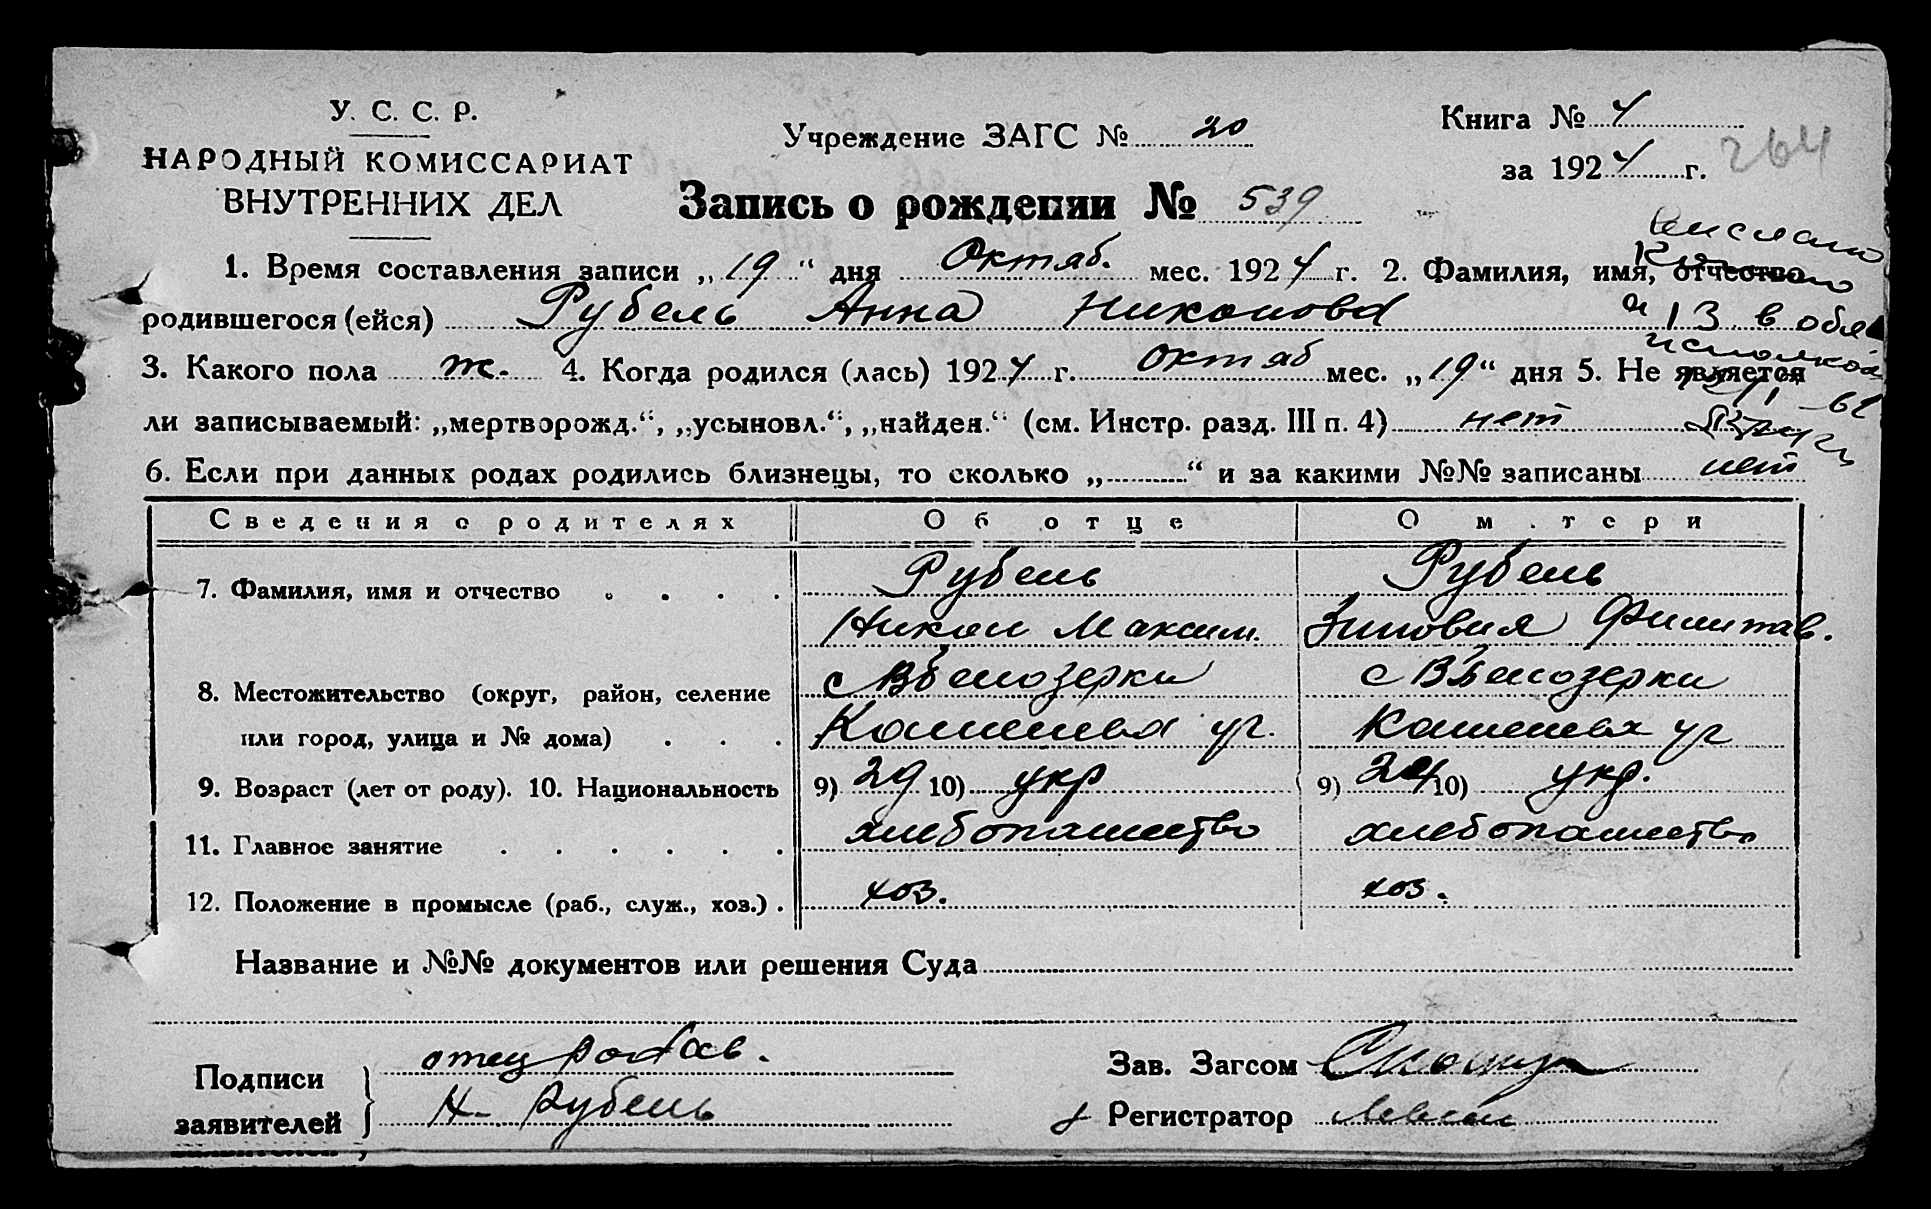 У. С. С. Р.
НАРОДНЫЙ КОМИССАРИАТ
ВНУТРЕННИХ ДЕЛ
Учреждение ЗАГС № 20
Книга № 4
за 1924 г. 264
Запись о рождении № 539
1. Время составления записи „19“ дня Октяб. мес. 1924 г. 2. Фамилия, имя, отчество
родившегося (ейся) Рубель Анна Никонова
13 в
3. Какого пола ж. 4. Когда родился (лась) 1924 г. октяб мес. „19“ дня 5. Не является
ли записываемый: „мертворожд.“, „усыновл.“, „найден.“ (см. Инстр. разд. III п. 4) нет
6. Если при данных родах родились близнецы, то сколько „ “ и за какими №№ записаны нет
Сведения о родителях Об отце О м.тери
7. Фамилия, имя и отчество . . . . Рубель Рубель
Никон Максим. Зиновия Филитав.
8. Местожительство (округ, район, селение с ВБелозерки с ВБелозерки
или город, улица и № дома) . . .
9. Возраст (лет от роду). 10. Национальность 9) 29 10) укр 9) 24 10) укр.
11. Главное занятие . . . . . . хлебопашество хлебопашество
12. Положение в промысле (раб., служ., хоз.) . хоз. хоз.
Название и №№ документов или решения Суда
Подписи
заявителей
отец
Н. Рубель
Зав. Загсом
Регистратор